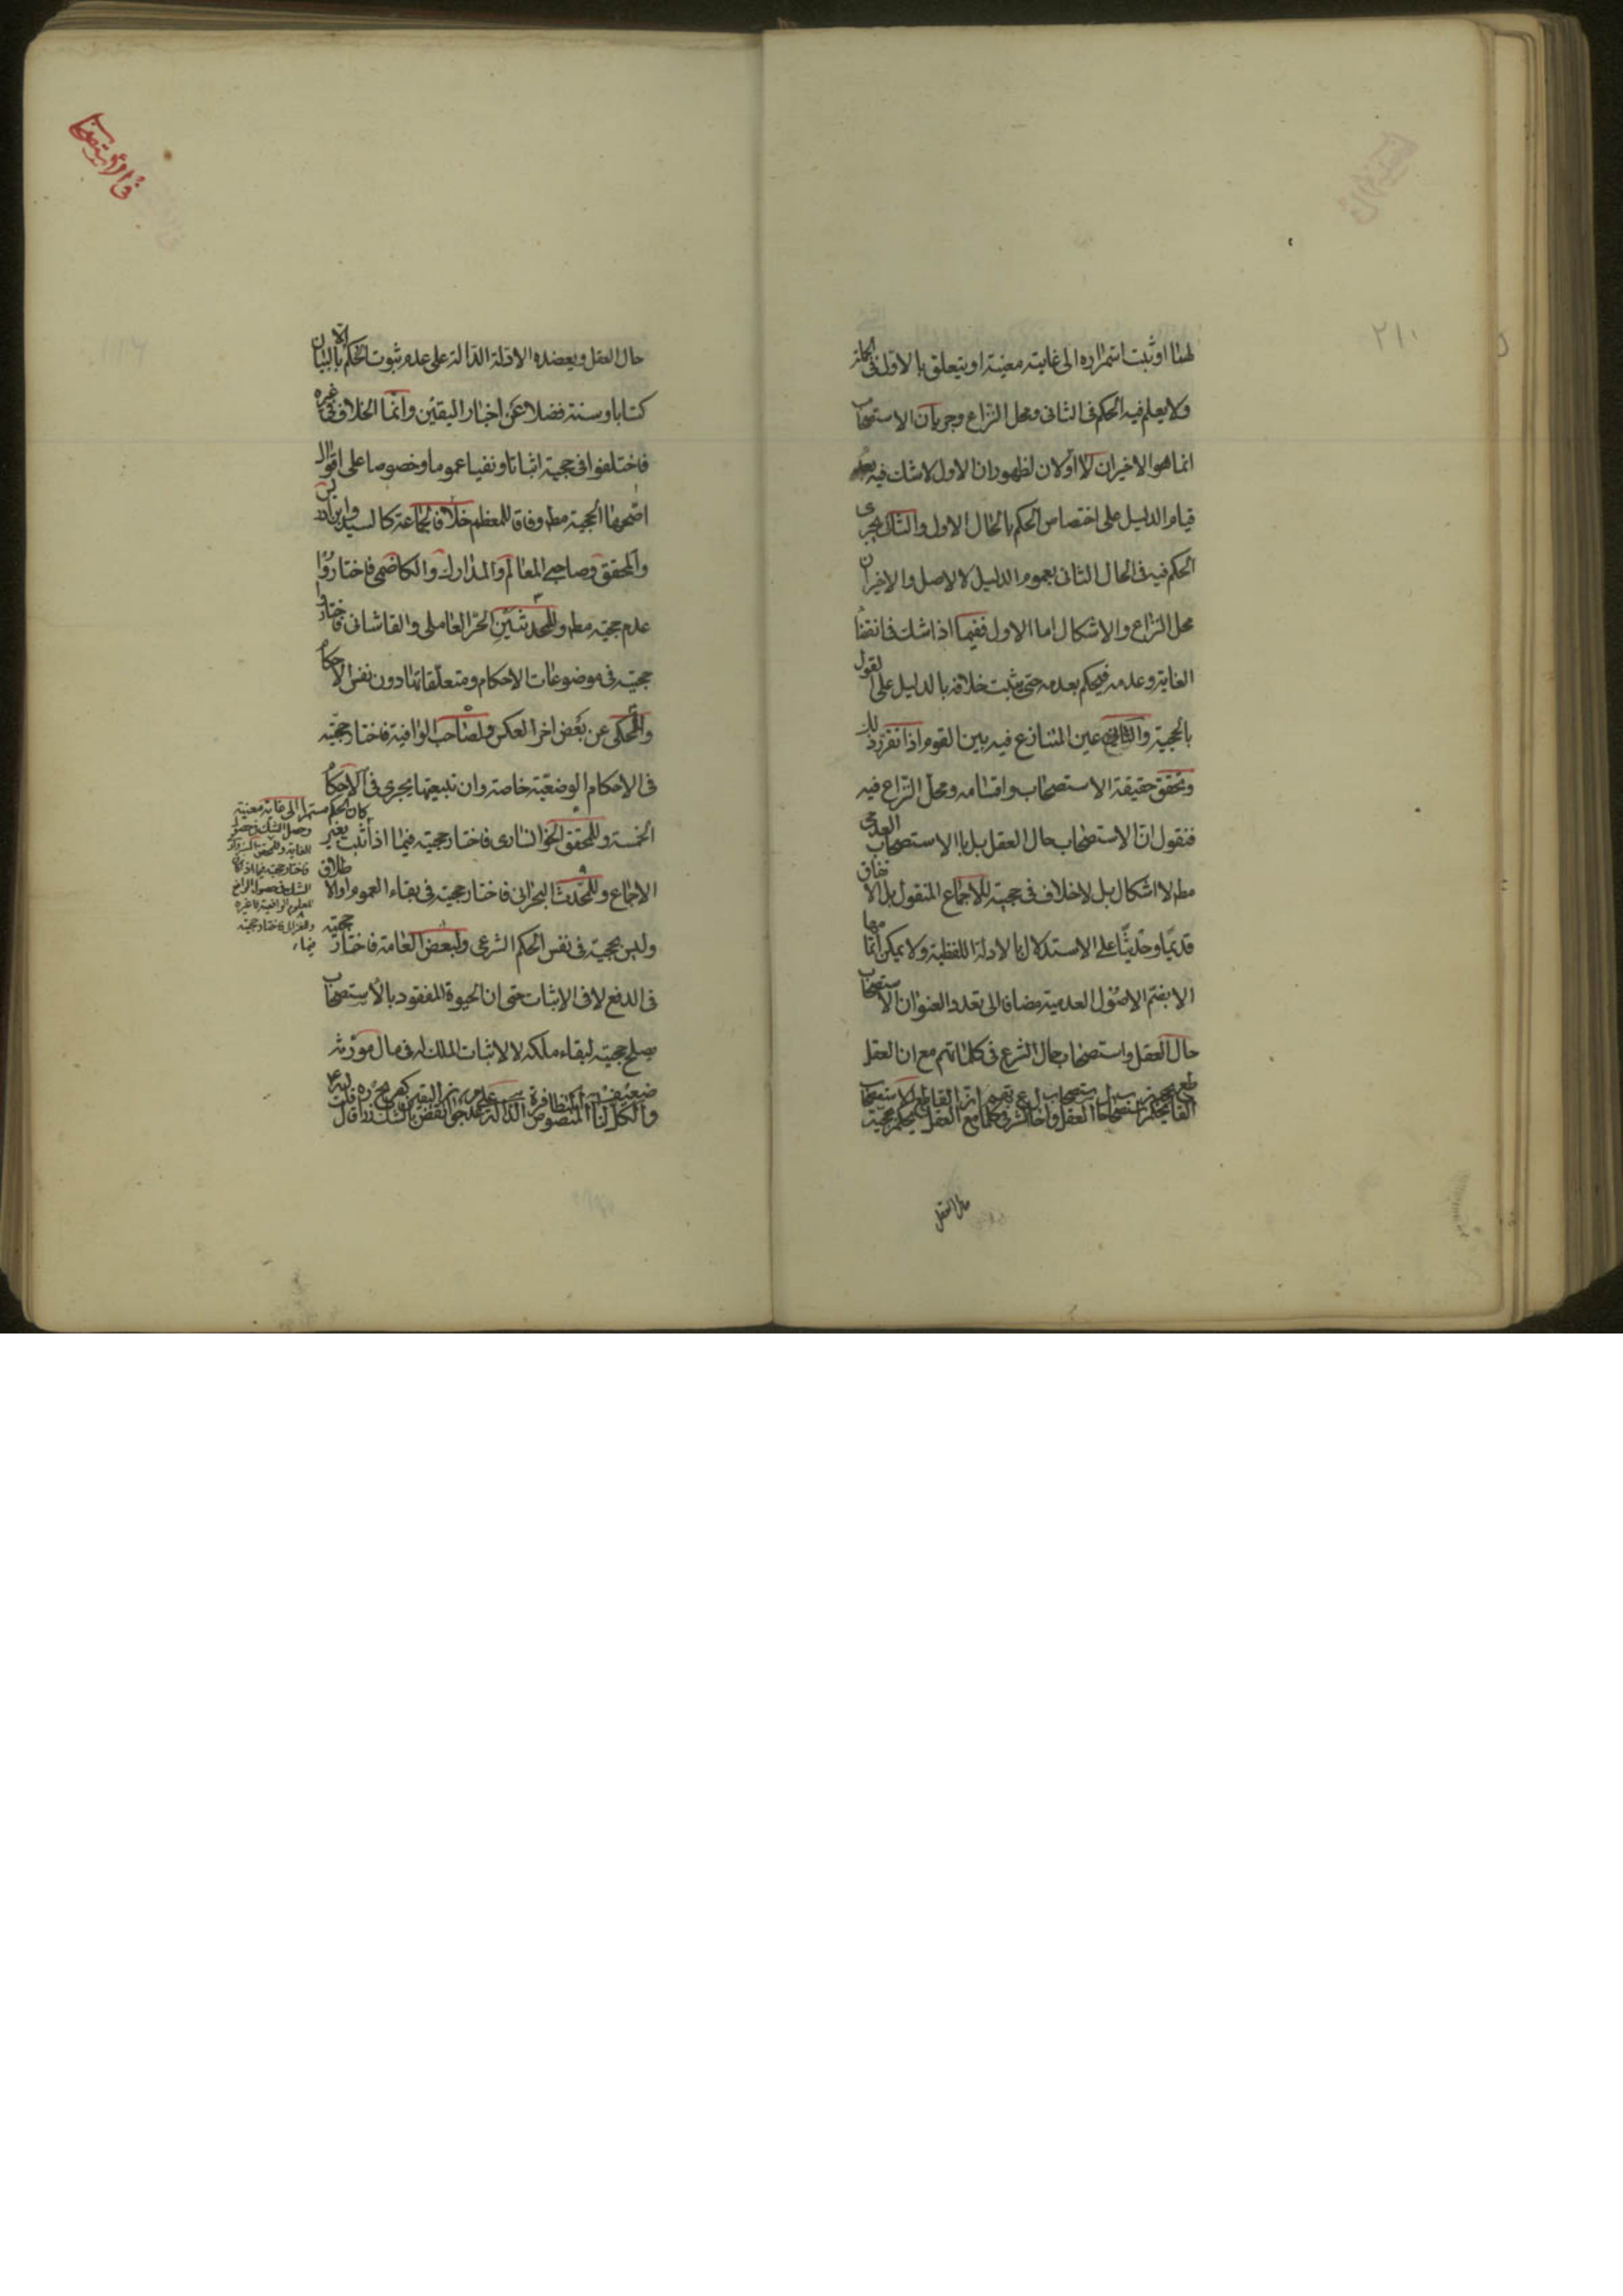 ٢١٠
لهما او ثبت استمراره الى غاية معينة او يتعلق بالاول فى الجملة
ولا يعلم فيه الحكم فى الثانى ومحل النزاع وجريان الاستصحاب
انما هو الاخيران لا الاولان لظهور ان الاول لا شك فيه بعد
قيام الدليل على اختصاص الحكم بالحال الاول والثانى يجرى
الحكم فيه فى الحال الثانى بعموم الدليل لا الاصل والاخيران
محل النزاع والاشكال اما الاول ففيما اذا شك فى انقضاء
الغاية وعدمه فيحكم بعدمه حتى يثبت خلافه بالدليل على القول
بالحجية والثانى عين المتنازع فيه بين القوم اذا تقرر ذلك
وتحقق حقيقة الاستصحاب واقسامه ومحل النزاع فيه
فنقول ان الاستصحاب حال العقل بل بالاستصحاب العدمى
مطم لا اشكال بل لا خلاف فى حجيته للاجماع المنقول بل الاتفاق
قديما وحديثا على الاستدلال بالادلة اللفظية ولا يمكن اتمامها
الا بضم الاصول العدمية مضافا الى تعدد العنوان الاستصحاب
حال العقل واستصحاب حال الشرع فى كلماتهم مع ان العقل
القاطع يحكم
حال العقل
فى الاستصحاب
حال العقل ويعضده الادلة الدالة على عدم ثبوت الحكم الا بالبيان
كتابا وسنة فضلا عن اخبار اليقين وانما الخلاف فى غيره
فاختلفوا فى حجيته اثباتا ونفيا عموما وخصوصا على اقوال
اصحها الحجية مطم وفاقا للمعظم خلافا لجماعة كالسيد وابن ادريس
والمحقق وصاحبى المعالم والمدارك والكاظمى فاختاروا
عدم حجيته مطم وللمحدثين الحر العاملى والقاشانى فاختارا
حجيته فى موضوعات الاحكام ومتعلقاتها دون نفس الاحكام
والمحكى عن بعض اخر العكس ولصاحب الوافية فاختار حجيته
فى الاحكام الوضعية خاصة وان تبعيتها يجرى فى الاحكام
الخمسة وللمحقق الخوانسارى فاختار حجيته فيما اذا ثبت بغير
الاجماع وللمحدث البحرانى فاختار حجيته فى بقاء العموم والاطلاق
وليس بحجية فى نفس الحكم الشرعى ولبعض العامة فاختار حجيته
فى الدفع لا فى الاثبات حتى ان الحيوة المفقود بالاستصحاب
يصلح حجيته لبقاء ملكه لا لاثبات الملك له فى مال مورثه
والكل ضعيف لنا النصوص المتظافرة الدالة على عدم جواز نقض اليقين بالشك
كان الحكم مستمرا الى غاية معينة
وحصل الشك فى حصول
الغاية وللمحقق السبزوارى
فاختار حجيته فيما اذا كان
الشك فى حصول الرافع
المعلوم الرافعية لا غيره
وللغزالى فاختار حجيته
فيما